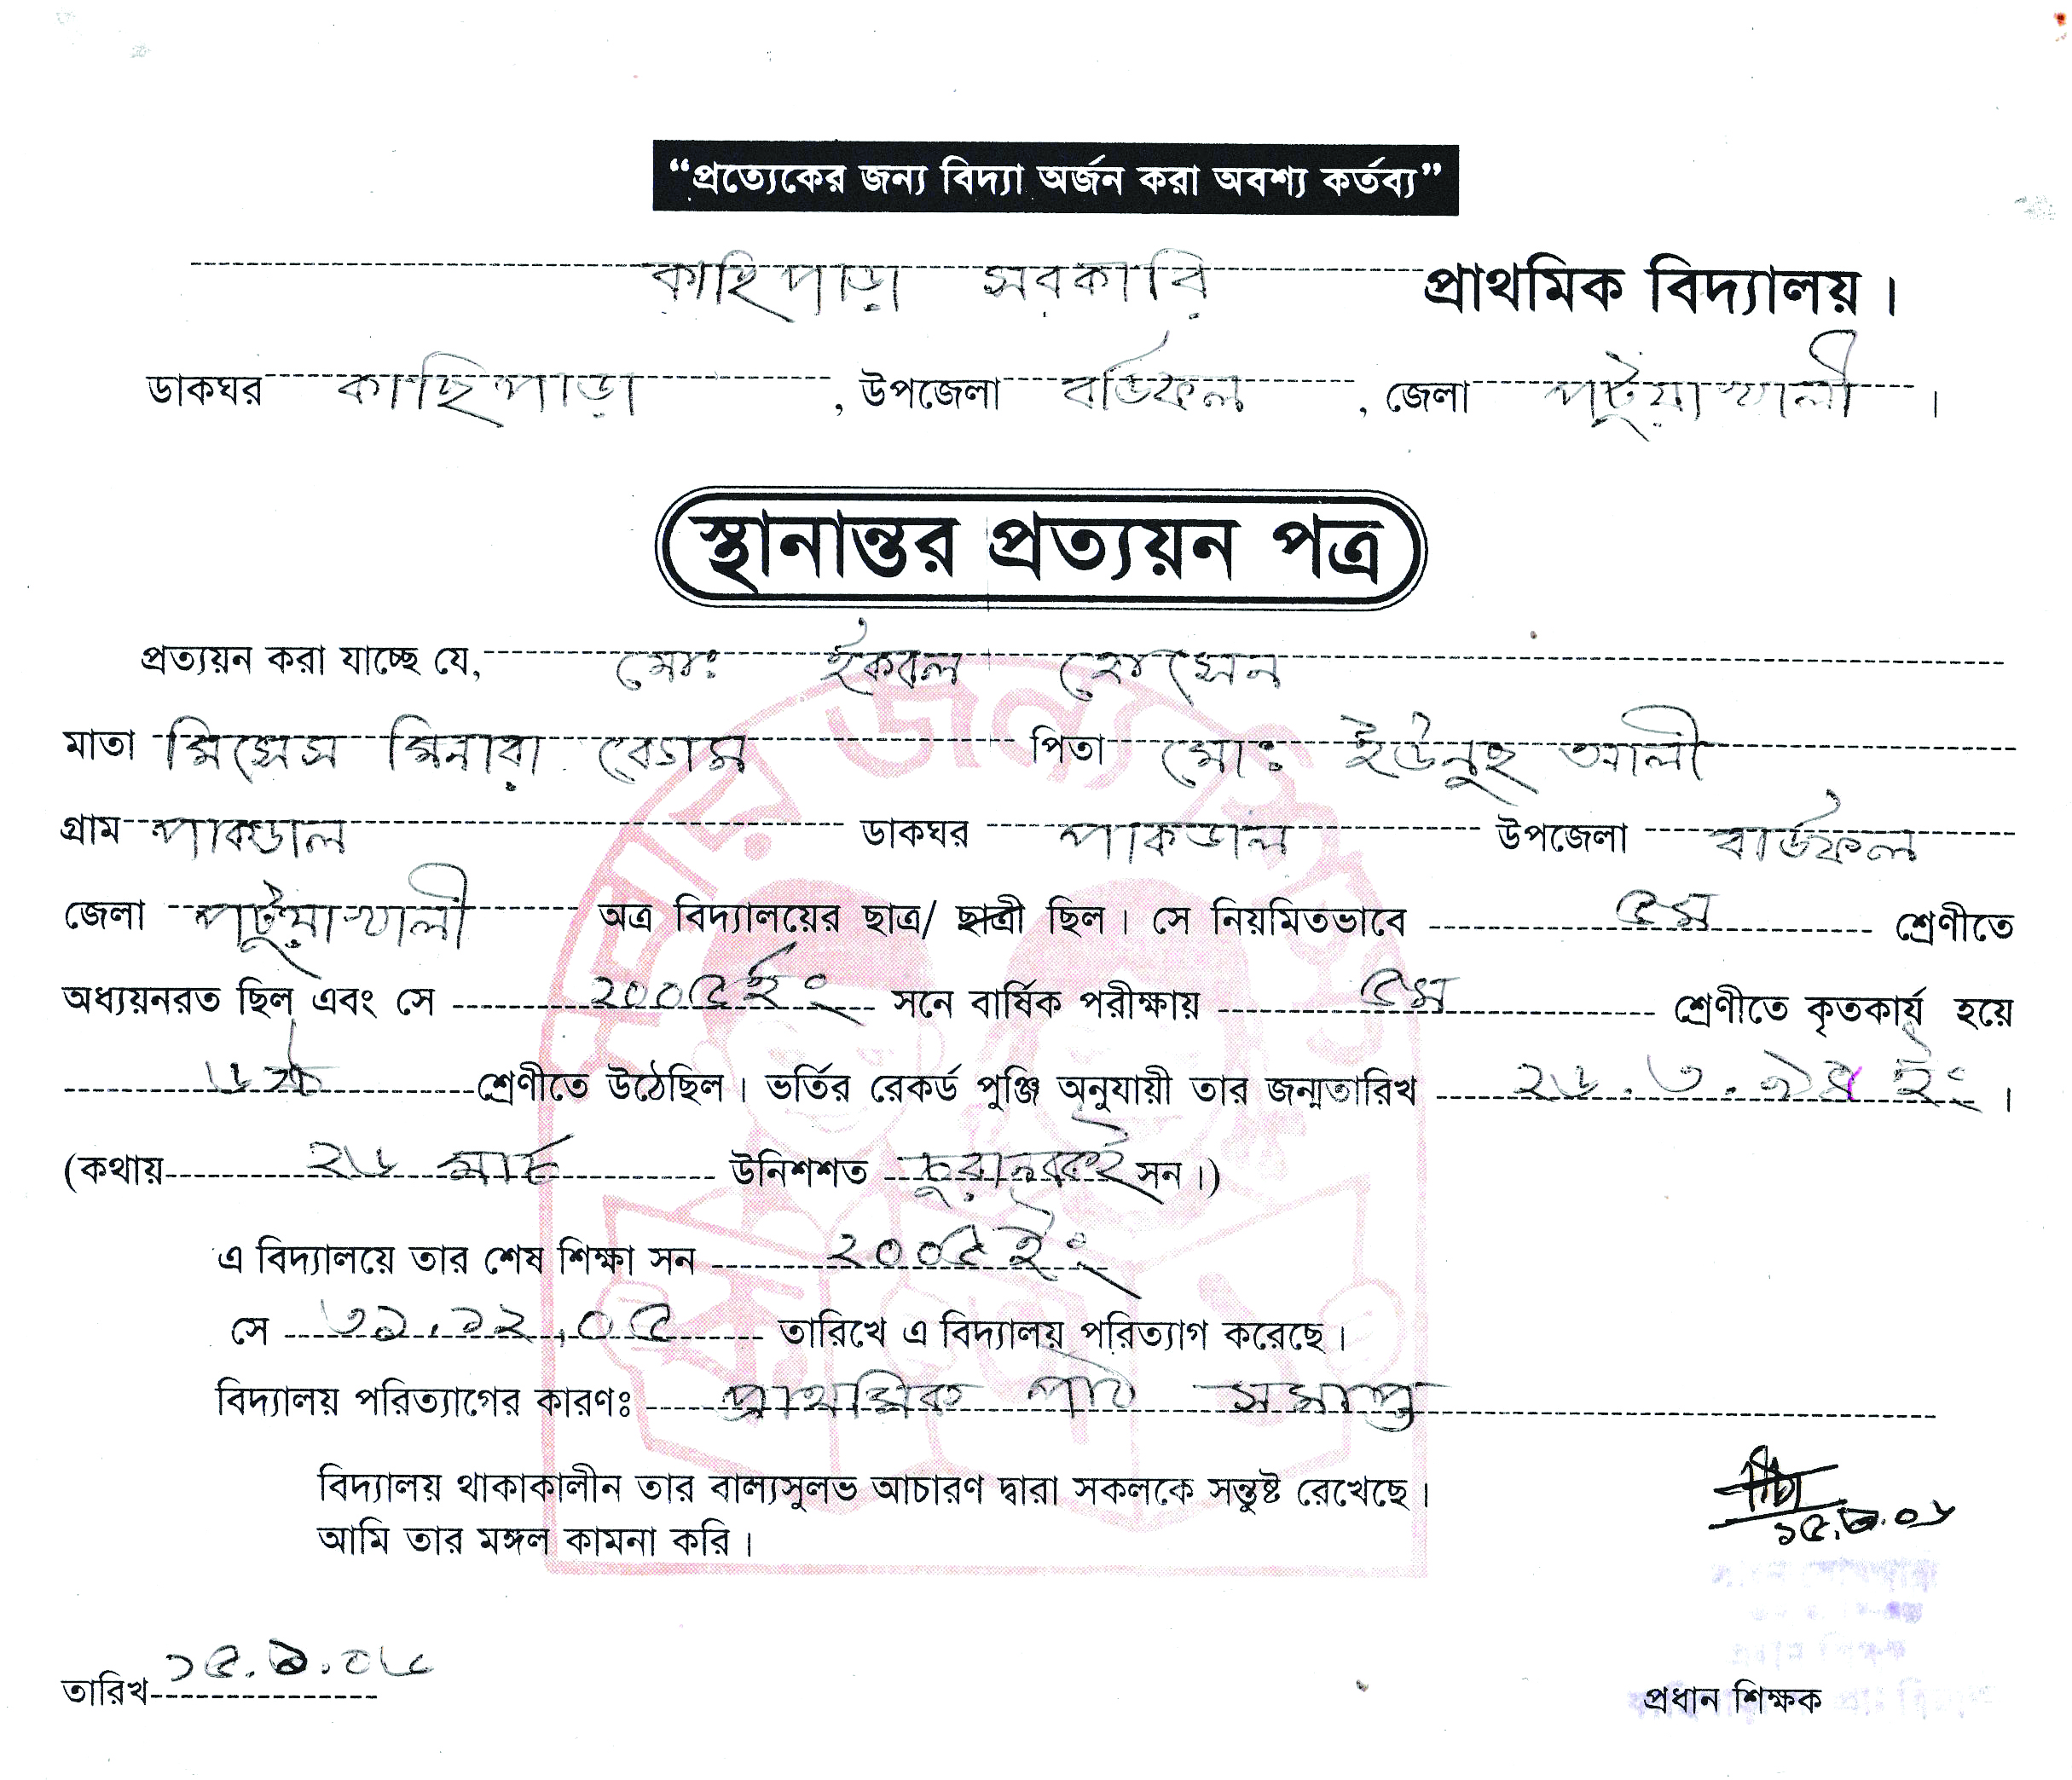 “প্রত্যেকের জন্য বিদ্যা অর্জন করা অবশ্য কর্তব্য”
কাছিপাড়া সরকারি প্রাথমিক বিদ্যালয়।
ডাকঘর কাছিপাড়া , উপজেলা বাউফল , জেলা পটুয়াখালী ।
স্থানান্তর প্রত্যয়ন পত্র
প্রত্যয়ন করা যাচ্ছে যে, মোঃ ইকবাল হোসেন
মাতা মিসেস মিনারা বেগম পিতা মোঃ ইউনুছ আলী
গ্রাম পাকডাল ডাকঘর পাকডাল উপজেলা বাউফল
জেলা পটুয়াখালী অত্র বিদ্যালয়ের ছাত্র/ ছাত্রী ছিল। সে নিয়মিতভাবে ৫ম শ্রেণীতে
অধ্যয়নরত ছিল এবং সে ২০০৫ইং সনে বার্ষিক পরীক্ষায় ৫ম শ্রেণীতে কৃতকার্য হয়ে
৬ষ্ঠ শ্রেণীতে উঠেছিল। ভর্তির রেকর্ড পুঞ্জি অনুযায়ী তার জন্মতারিখ ২৬.৩.৯৪ ইং ।
(কথায় ২৬ মার্চ উনিশশত চুরানব্বই সন।)
এ বিদ্যালয়ে তার শেষ শিক্ষা সন ২০০৫ইং
সে ৩১.১২.০৫ তারিখে এ বিদ্যালয় পরিত্যাগ করেছে।
বিদ্যালয় পরিত্যাগের কারণঃ প্রাথমিক পাঠ সমাপ্ত
বিদ্যালয় থাকাকালীন তার বাল্যসুলভ আচারণ দ্বারা সকলকে সন্তুষ্ট রেখেছে।
আমি তার মঙ্গল কামনা করি।
তারিখ ১৫.১.০৬
প্রধান শিক্ষক